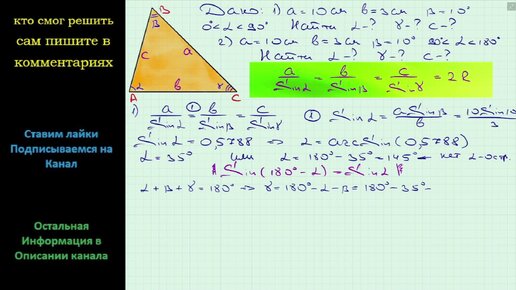 кто смог решить
сам пишите в
комментариях
Ставим лайки
Подписываемся на
Канал
Остальная
Информация в
Описании канала
B
β
c
a
A
α
b
γ
C
Дано: 1) a=10см b=3см β=10°
0°<α<90° Найти α-? γ-? c-?
2) a=10см b=3см β=10° 90°<α<180°
Найти α-? γ-? c-?
a/Sinα = b/Sinβ = c/Sinγ = 2R
1) a/Sinα =① b/Sinβ = c/Sinγ ① Sinα = aSinβ/b = 10Sin10°/3
Sinα = 0,5788 ⇒ α = arcSin(0,5788)
α = 35° или α = 180°-35° = 145° - нет α-остр.
Sin(180°-α) = Sinα
α+β+γ=180° ⇒ γ=180°-α-β=180°-35°-